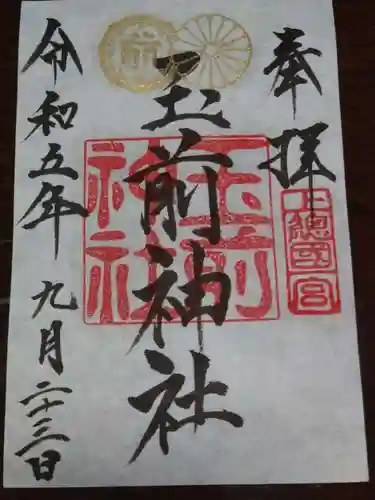 奉拝
上総国宮
玉前神社
玉前神社
令和五年九月二十三日